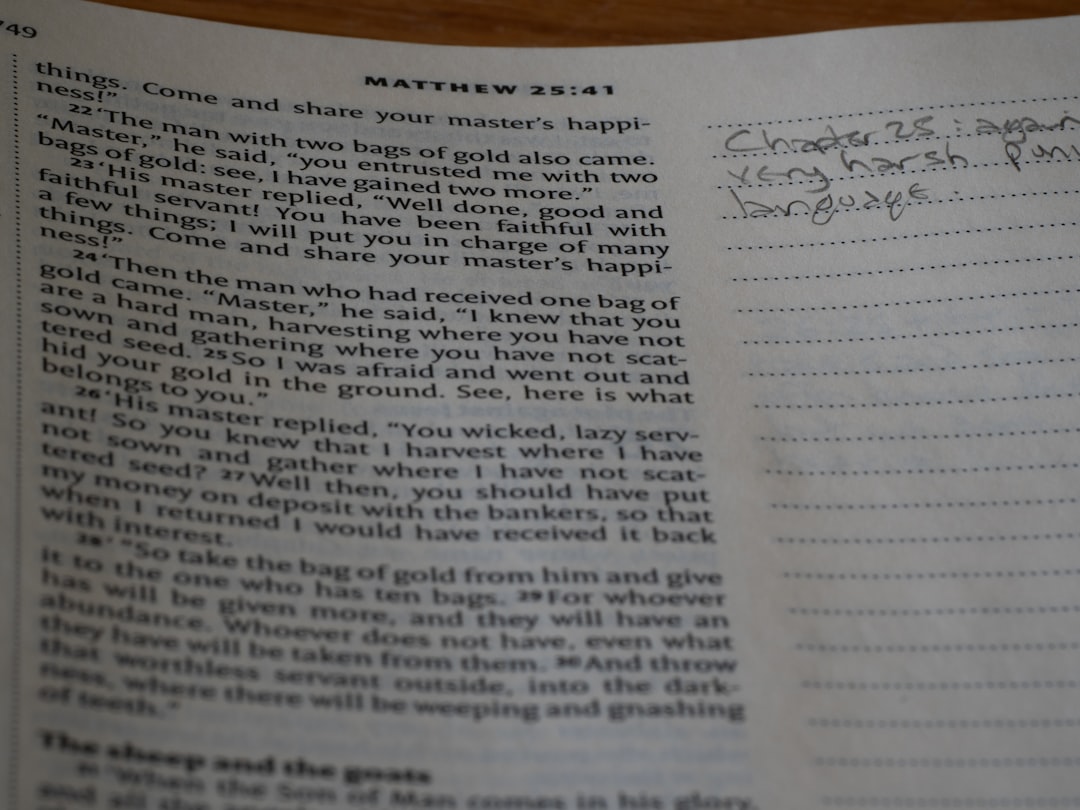 749
MATTHEW 25:41
things. Come and share your master's happi-
ness!”
22 ‘The man with two bags of gold also came.
“Master,” he said, “you entrusted me with two
bags of gold: see, I have gained two more.”
23 ‘His master replied, “Well done, good and
faithful servant! You have been faithful with
a few things; I will put you in charge of many
things. Come and share your master's happi-
ness!”
24 ‘Then the man who had received one bag of
gold came. “Master,” he said, “I knew that you
are a hard man, harvesting where you have not
sown and gathering where you have not scat-
tered seed. 25 So I was afraid and went out and
hid your gold in the ground. See, here is what
belongs to you.”
26 ‘His master replied, “You wicked, lazy serv-
ant! So you knew that I harvest where I have
not sown and gather where I have not scat-
tered seed? 27 Well then, you should have put
my money on deposit with the bankers, so that
when I returned I would have received it back
with interest.
28 ‘ “So take the bag of gold from him and give
it to the one who has ten bags. 29 For whoever
has will be given more, and they will have an
abundance. Whoever does not have, even what
they have will be taken from them. 30 And throw
that worthless servant outside, into the dark-
ness, where there will be weeping and gnashing
of teeth.”
The sheep and the goats
31 ‘When the Son of Man comes in his glory,
and all the
Chapter 25 : again
very harsh
language :